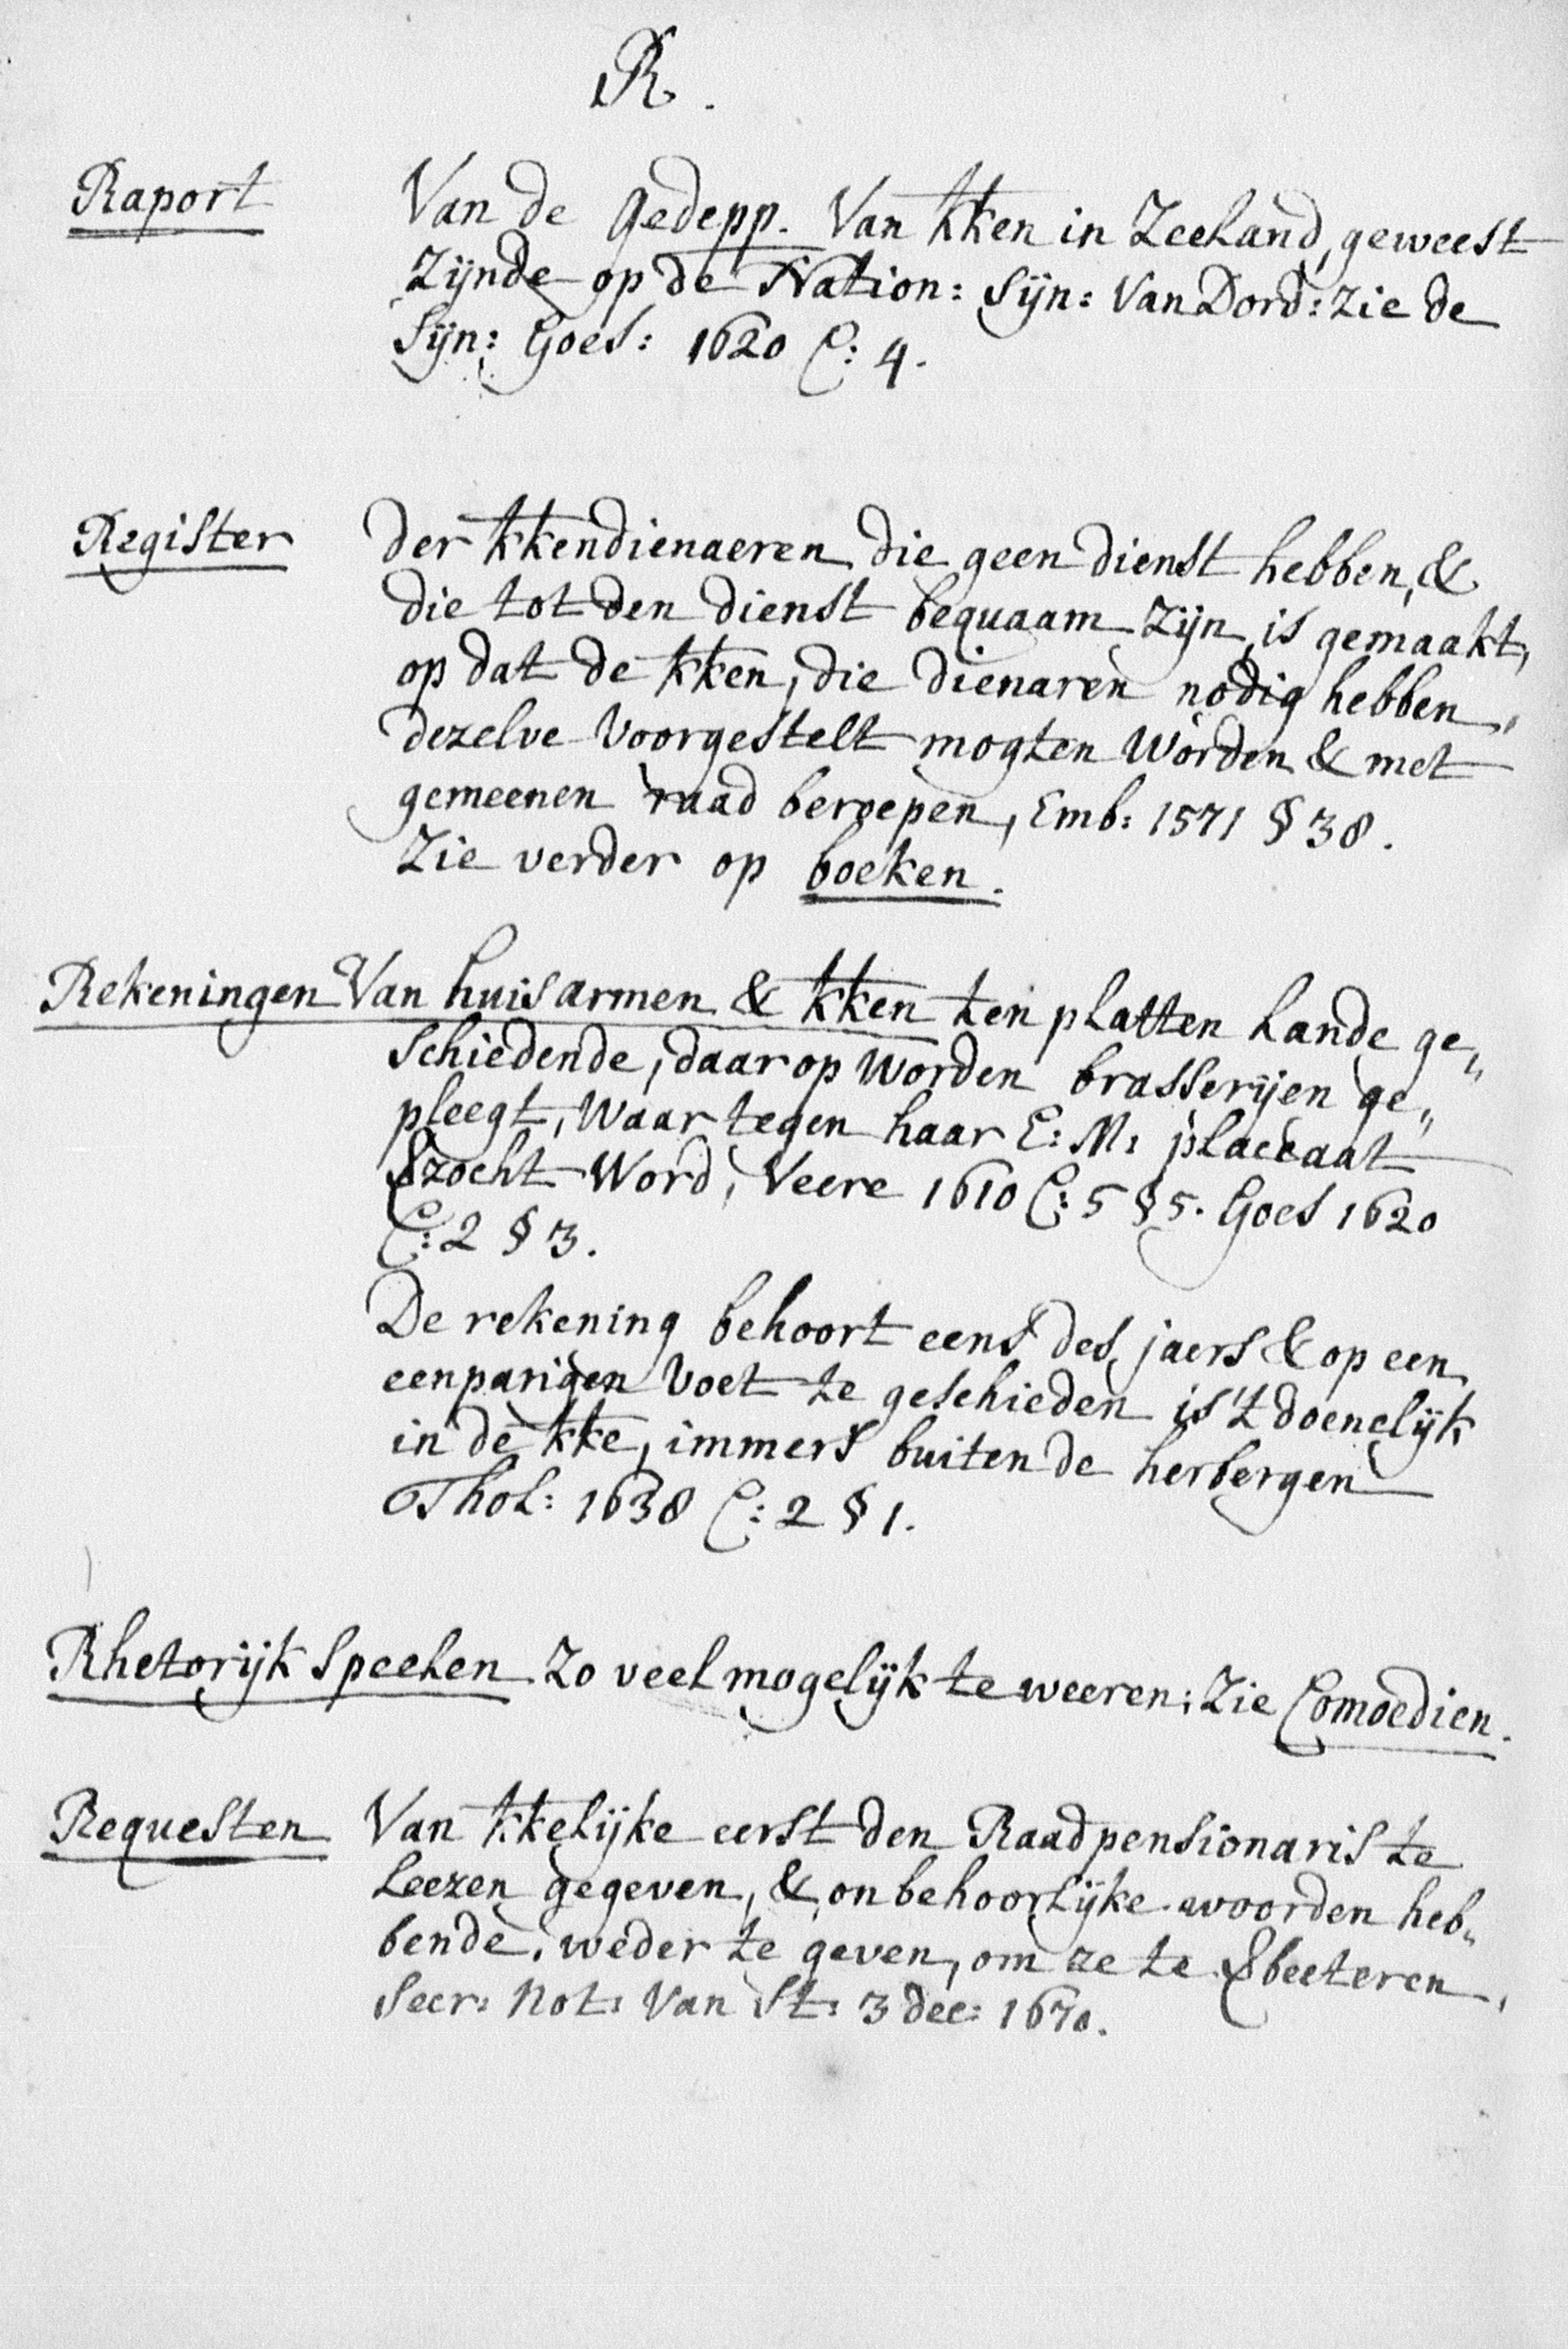 R.
Raport Van de gedepp. Van kken in Zeeland, geweest
Zijnde op de Nation: Sijn: Van Dord: zie de
Sijn: Goes: 1620 C: 4.
Register der kkendienaeren die geen dienst hebben, &
die tot den dienst bequaam Zijn, is gemaakt,
op dat de kken, die dienaren nodig hebben,
dezelve voorgestelt mogten worden & met
gemeenen raad beroepen, Emb: 1571 § 38.
Zie verder op boeken.
Rekeningen Van huisarmen & kken ten platten Lande ge„
schiedende, daar op worden brasserijen ge„
pleegt, waar tegen haar E: M: placcaat
Szocht word, Veere 1610 C: 5 § 5. Goes 1620
C: 2 § 3.
De rekening behoort eens des jaers & op een
eenparigen voet te geschieden is 't doenelijk
in de kke, immers buiten de herbergen
Thol: 1638 C: 2 § 1.
Rhetorijk speelen Zo veel mogelijk te weeren; Zie Comoedien.
Requesten Van kkelijke eerst den Raadpensionaris te
Leezen gegeven, & onbehoorlijke woorden heb„
bende, weder te geven, om ze te Sbeeteren,
Secr: Not: Van St: 3 dec: 1670.